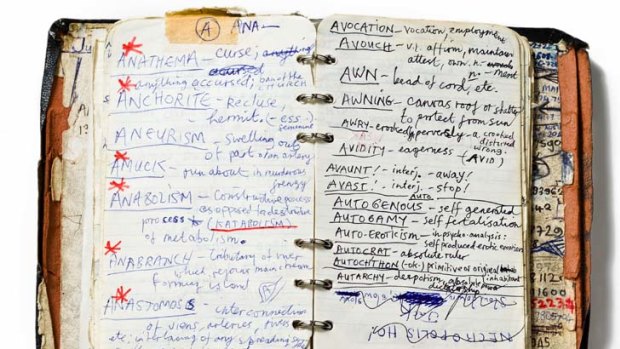 A
ANA-
ANATHEMA - curse; anything
accursed
anything accursed; ban of the
CHURCH
ANCHORITE - Recluse,
hermit. (-ess-)
feminine
ANEURISM - Swelling out
of part of an artery
AMUCK - run about in murderous
frenzy
ANABOLISM - Constructive process
as opposed to destructive
process (KATABOLISM)
of metabolism.
ANABRANCH - tributary of river
which rejoins main stream
forming island
A
ANASTOMOSIS - interconnection
of veins, arteries, trees
etc; interlacing of any spreading
AVOCATION - vocation, employment
AVOUCH - v.t. affirm, maintain
attest, own. n.
n. - ment
AWN - beard of corn, etc.
AWNING - canvas roof or shelter
to protect from sun
AWRY - crookedly, perversely - a. crooked
distorted
wrong.
AVIDITY - eagerness (AVID)
AVAUNT! - interj. - away!
AVAST! - interj. - stop!
AUTO
AUTOGENOUS - self generated
AUTOGAMY - self fertalisation
AUTO-EROTICISM - in psycho-analysis:
self produced erotic emotions
AUTOCRAT - absolute ruler
AUTOCHTHON (-ok-) primitive or original
inhabitant
AUTARCHY - despotism, absolute power
NECROPOLIS HOJ